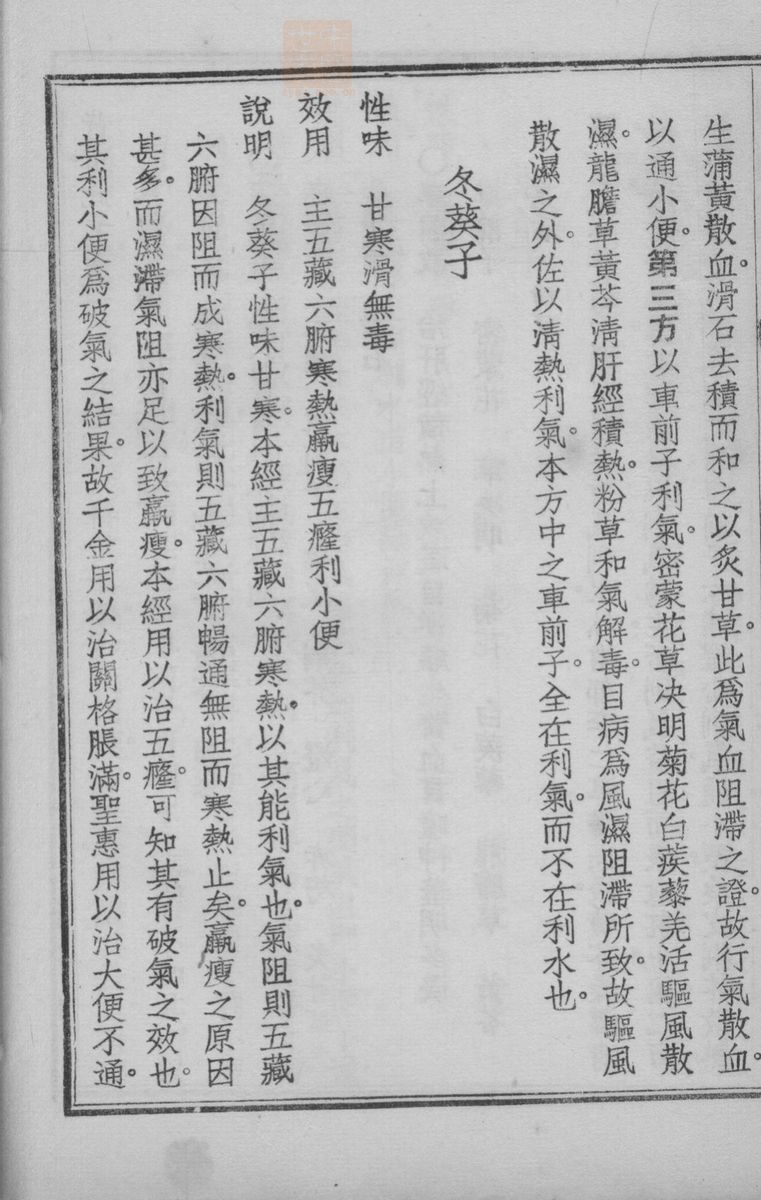 生蒲黃散血。滑石去積而和之以炙甘草。此爲氣血阻滯之證。故行氣散血。
以通小便。第三方以車前子利氣。密蒙花草決明菊花白蒺藜羌活驅風散
濕。龍膽草黃芩淸肝經積熱。粉草和氣解毒。目病爲風濕阻滯所致。故驅風
散濕之外。佐以淸熱利氣。本方中之車前子。全在利氣。而不在利水也。
冬葵子
性味　甘寒滑無毒
效用　主五藏六腑寒熱羸瘦五癃利小便
說明　冬葵子性味甘寒。本經主五藏六腑寒熱。以其能利氣也。氣阻則五藏
六腑因阻而成寒熱。利氣則五藏六腑暢通無阻而寒熱止矣。羸瘦之原因
甚多。而濕滯氣阻亦足以致羸瘦。本經用以治五癃。可知其有破氣之效也。
其利小便爲破氣之結果。故千金用以治關格脹滿。聖惠用以治大便不通。